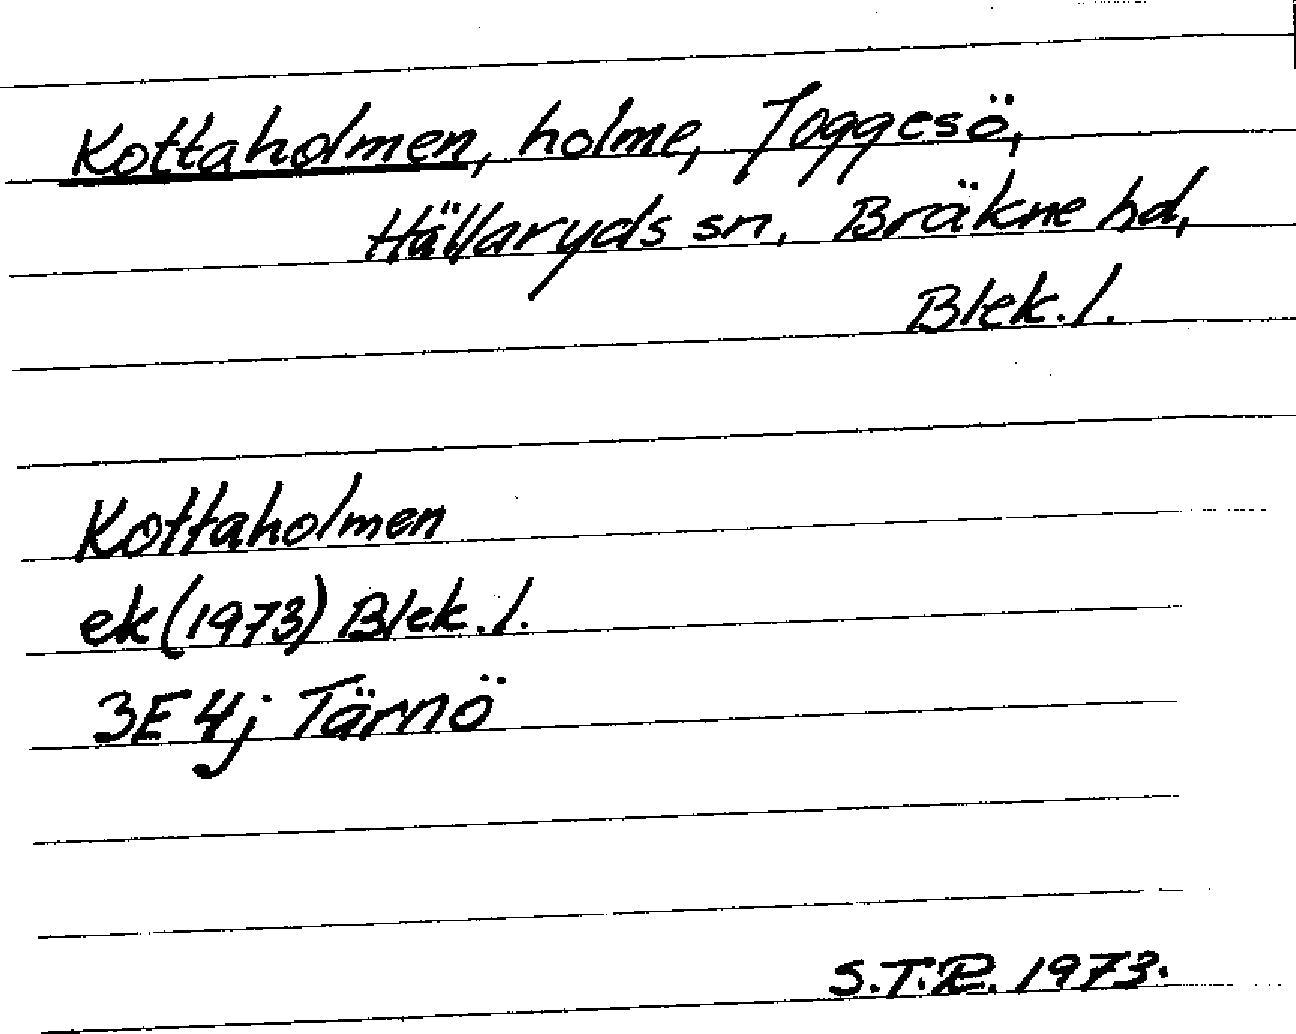 Kottaholmen, holme, Joggesö,
Hällaryds sn, Bräkne hd,
Blek. l.
Kottaholmen
ek (1973) Blek. l.
3E 4j Tärnö
S.T.R. 1973.